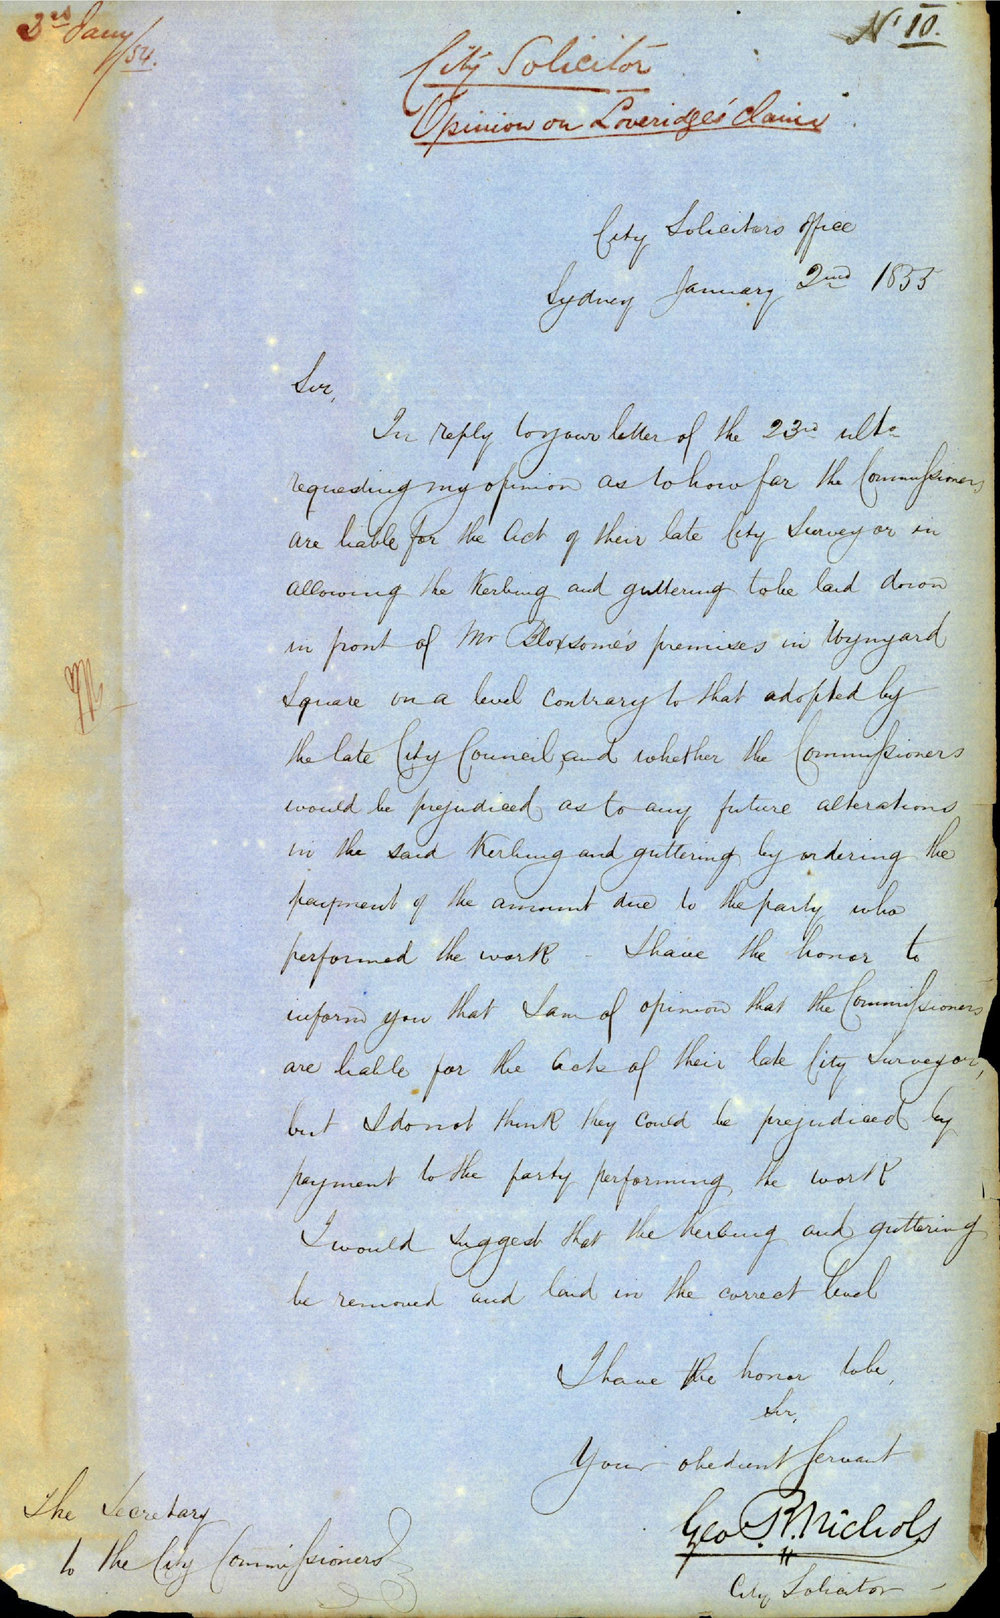 3rd Jany /54.
No 10.
City Solicitor
Opinion on Loveridge's claim
City Solicitors office
Sydney January 2nd 1855
Sir,
In reply to your letter of the 23rd ulto
requesting my opinion as to how far the Commissioners
are liable for the Act of their late City Surveyor in
allowing the Kerbing and guttering to be laid down
in front of Mr Bloxsome's premises in Wynyard
Square on a level contrary to that adopted by
the late City Council, and whether the Commissioners
would be prejudiced as to any future alterations
in the said Kerbing and guttering by ordering the
payment of the amount due to the party who
performed the work - I have the honor to
inform you that I am of opinion that the Commissioners
are liable for the Acts of their late City Surveyor,
but I do not think they could be prejudiced by
payment to the party performing the work
I would suggest that the Kerbing and guttering
be removed and laid in the correct level
I have the honor to be,
Sir,
Your obedient Servant
Geo R. Nichols
City Solicitor
The Secretary
to the City Commissioners